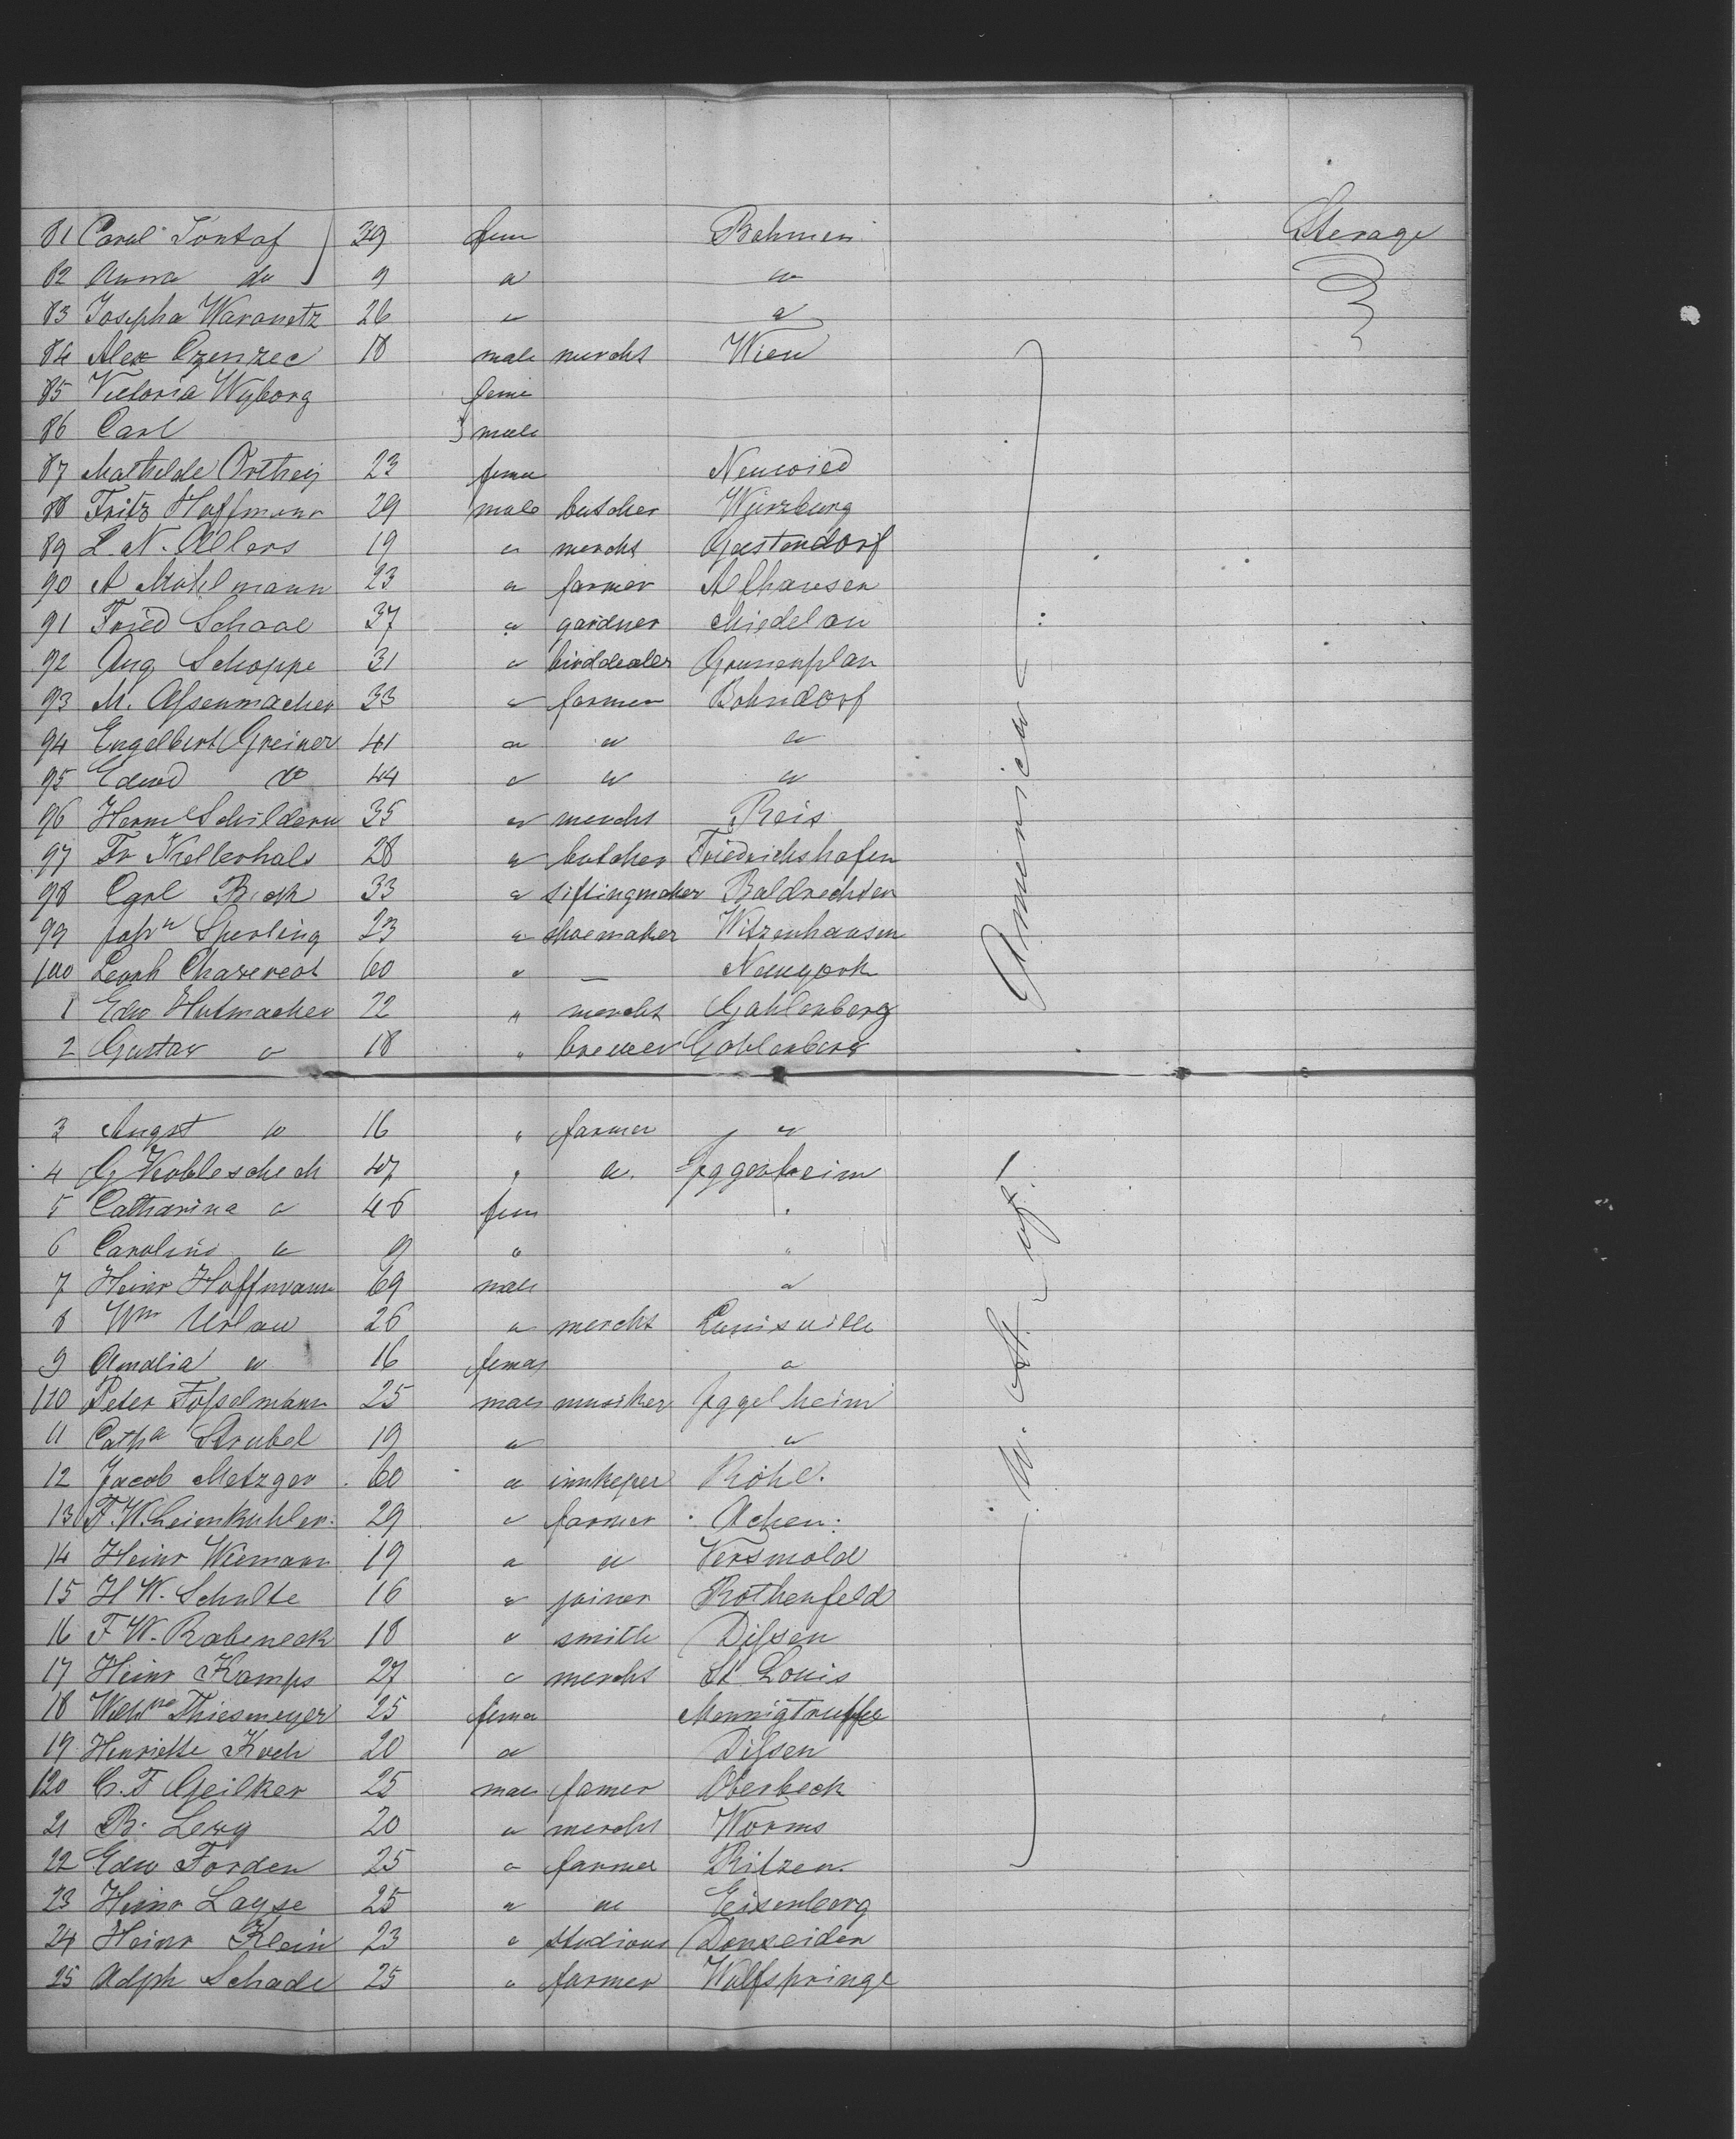 81 Carel Tontaf 39 fem Bohmen Sterage
82 Anna do 9 " "
83 Josepha Waranetz 26 " "
84 Alex Czenzec 18 male mercht Wien
85 Victoria Wyborg feme
86 Carl } male
87 Mathilde Ortheij 23 fema Neuwied
88 Fritz Hoffmann 29 male butcher Würzburg
89 L. N. Allers 19 " mercht Geestendorf
90 A Mohlmann 23 " farmer Alhausen
91 Fried Schaal 37 " gardner Miedelau
92 Aug Schoppe 31 " birddealer Grunenplan
93 M. Assenmacher 33 " farmer Bohndorf
94 Engelbert Greiner 41 " " "
95 Edwd do 44 " " "
96 Herm Schildern 35 " mercht Reis
97 Fr Kellerhals 28 " butcher Friedrichshafen
98 Carl Beck 33 " siftingmaker Baldrechten
99 Joh n Sperling 23 " shoemaker Witzenhausen
100 Leonh Chazereat 60 " — Newyork
1 Edw Hutmacher 22 " mercht Gahlenberg
2 Gustav " 18 " brewer Gahlenberg
3 Augst " 16 " farmer "
4 G Koblescheck 47 " " Iggenheim
5 Catharina " 46 fem "
6 Caroline " 9 " "
7 Heinr Hoffmann 69 male "
8 Wm Urlau 26 " mercht Louisville
9 Amalia " 16 femal "
110 Peter Fosselmann 25 male musiker Iggelheim
11 Cath a Strubel 19 " "
12 Jacob Metzger 60 " innkeper Röhl.
13 F. W. Leienkuhler 29 " farmer Achen.
14 Heinr Wiemann 19 " " Versmold
15 H W. Schulte 16 " joiner Rothenfeld
16 F W. Rabeneck 18 " smith Dissen
17 Heinr Kamps 27 " mercht St Louis
18 Wilh ne Thiesmeyer 25 fema Mennigtruffe
19 Henriette Koch 20 " Dissen
120 C. F Geilker 25 male famer Oberbeck
21 B. Levy 20 " mercht Worms
22 Edw Forden 25 " farmer Ritzen.
23 Heinr Layse 25 " " Eisenberg
24 Heinr Klein 23 " studious Donseider
25 Adph Schade 25 " farmer Wulfspringe